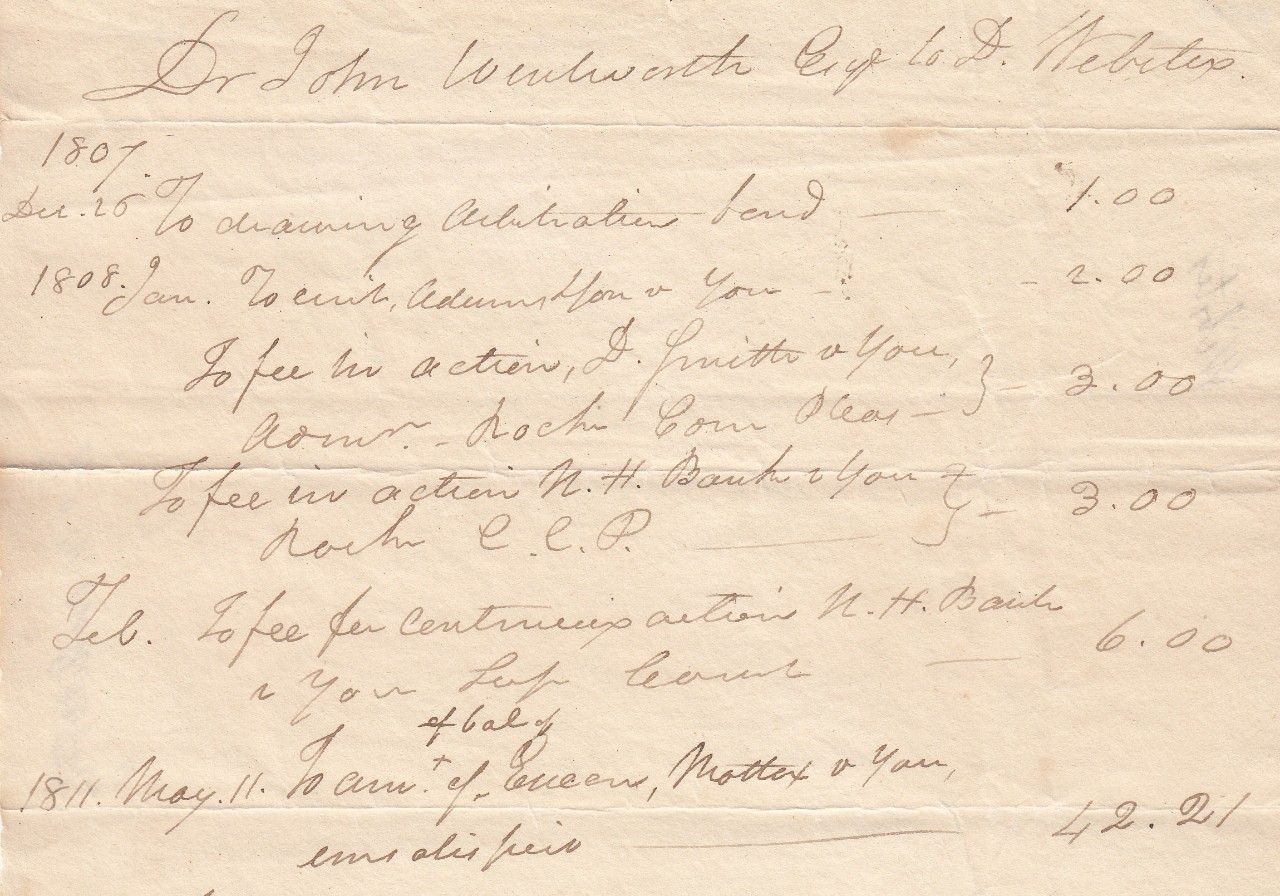 Dr John Wentworth Esqr to D. Webster.
1807.
Dec. 26 To drawing Arbitration bond — 1.00
1808. Jan. To writ, Adams & You v You - 2.00
To fee in action, D. Smith v You, } - 3.00
Admr. - Rock Com Pleas -
To fee in action N. H. Bank v You } - 3.00
Rock C. C. P. —
Feb. To fee for continuing action N. H. Bank
v You Sup Court — 6.00
& bal of
1811. May. 11. To amt. of Execon, v You,
— 42.21